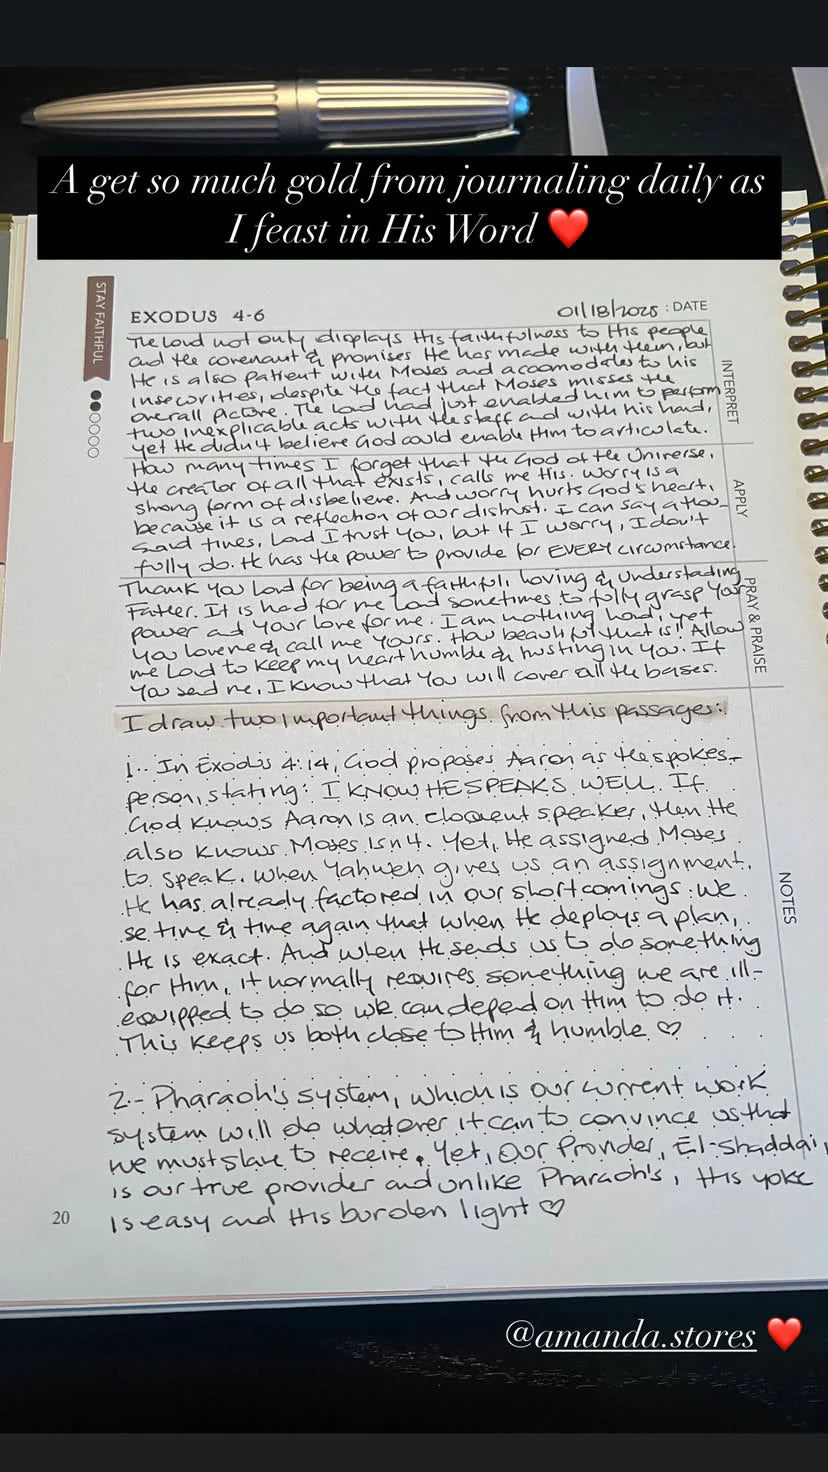 A get so much gold from journaling daily as
I feast in His Word ❤️
STAY FAITHFUL
EXODUS 4-6
01/18/2025 : DATE
The Lord not only displays His faithfulness to His people
and the covenant & promises He has made with them, but
He is also patient with Moses and accomodates to his
insecurities, despite the fact that Moses misses the
overall picture. The Lord had just enabled him to perform
two inexplicable acts with the staff and with his hand,
yet He didn't believe God could enable Him to articulate.
INTERPRET
How many times I forget that the God of the Universe,
the creator of all that exists, calls me His. Worry is a
strong form of disbelieve. And worry hurts God's heart,
because it is a reflection of our distrust. I can say a thou-
said times, Lord I trust You, but if I worry, I don't
fully do. He has the power to provide for EVERY circumstance.
APPLY
Thank You Lord for being a faithful, loving & understading
Father. It is hard for me Lord sometimes to fully grasp Your
power and Your love for me. I am nothing Lord, yet
You loved me & call me Yours. How beautiful that is! Allow
me Lord to keep my heart humble & trusting in You. If
You send me, I know that You will cover all the bases.
PRAY & PRAISE
I draw two important things from this passages:
1.- In Exodus 4:14, God proposes Aaron as the spokes-
person, stating: I KNOW HE SPEAKS WELL. If
God knows Aaron is an eloquent speaker, then He
also knows Moses isn't. Yet, He assigned Moses
to speak. When Yahweh gives us an assignment,
He has already factored in our shortcomings. We
se time & time again that when He deploys a plan,
He is exact. And when He sends us to do something
for Him, it normally requires something we are ill-
equipped to do so we can depend on Him to do it.
This keeps us both close to Him & humble ♡
NOTES
2.- Pharaoh's system, which is our current work
system will do whatever it can to convince us that
we must slave to receive. Yet, Our Provider, El-Shaddai,
is our true provider and unlike Pharaoh's, His yoke
is easy and His burden light ♡
20
@amanda.stores ❤️